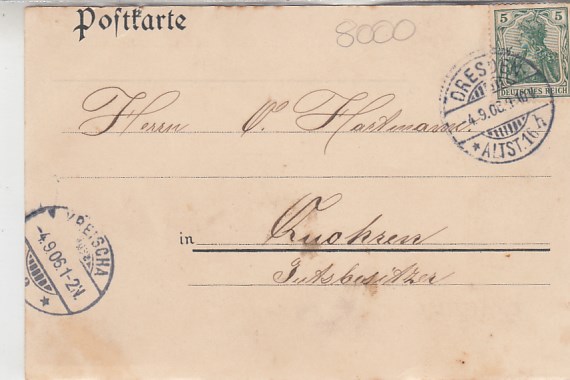 Postkarte
8000
5 5
DEUTSCHES REICH
DRESDEN
-4.9.06.9-10V.
*ALTST.16.h
Herrn O. Hartmann.
in Quohren
Gutsbesitzer
KREISCHA
-4.9.06.1-2N.